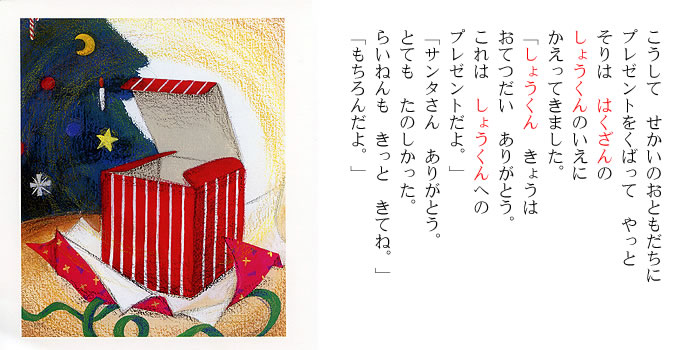 こうして　せかいのおともだちに
プレゼントをくばって　やっと
そりは　はくざんの
しょうくんのいえに
かえってきました。
「しょうくん　きょうは
おてつだい　ありがとう。
これは　しょうくんへの
プレゼントだよ。」
「サンタさん　ありがとう。
とても　たのしかった。
らいねんも　きっと　きてね。」
「もちろんだよ。」